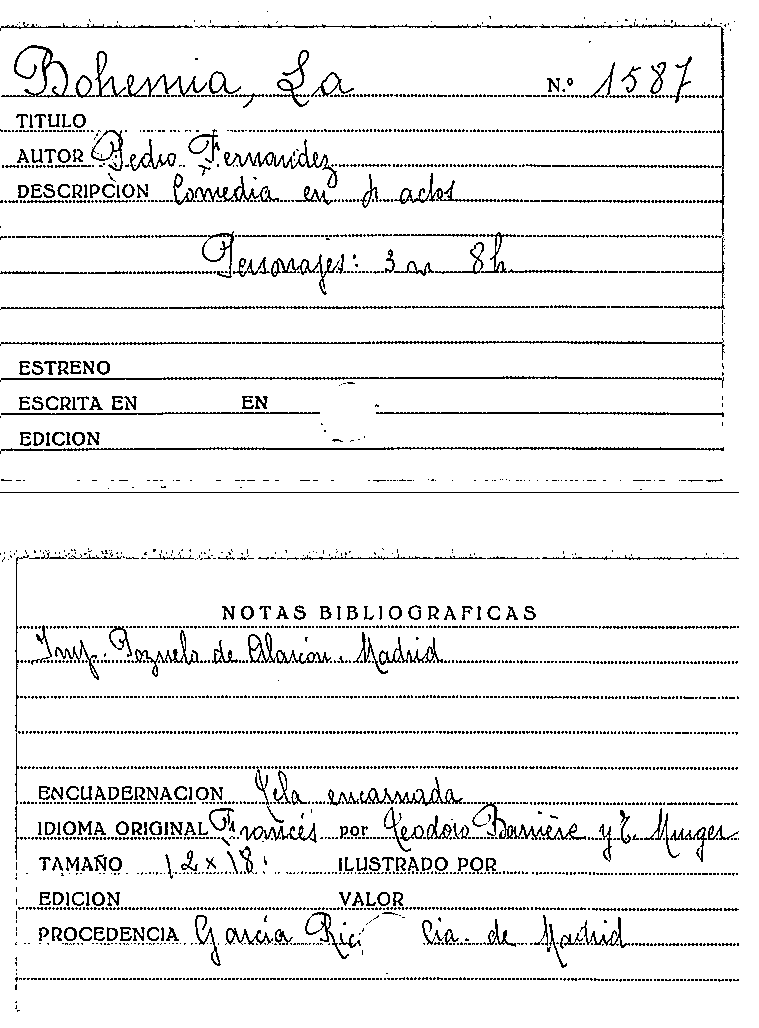 Bohemia, La N.º 1587
TITULO
AUTOR Pedro Fernandez
DESCRIPCION Comedia en 4 actos
Personajes: 3 m 8h.
ESTRENO
ESCRITA EN EN
EDICION
NOTAS BIBLIOGRAFICAS
Imp. Pozuelo de Alarcón. Madrid
ENCUADERNACION Tela encarnada
IDIOMA ORIGINAL Francés por Teodoro Barrière y E. Murger
TAMAÑO 12 x 18. ILUSTRADO POR
EDICION VALOR
PROCEDENCIA García Rico Cia. de Madrid